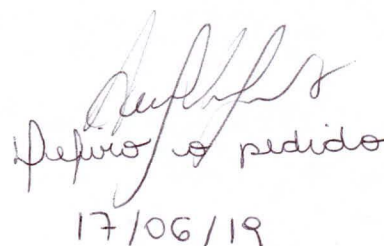 Defiro o pedido
17/06/19